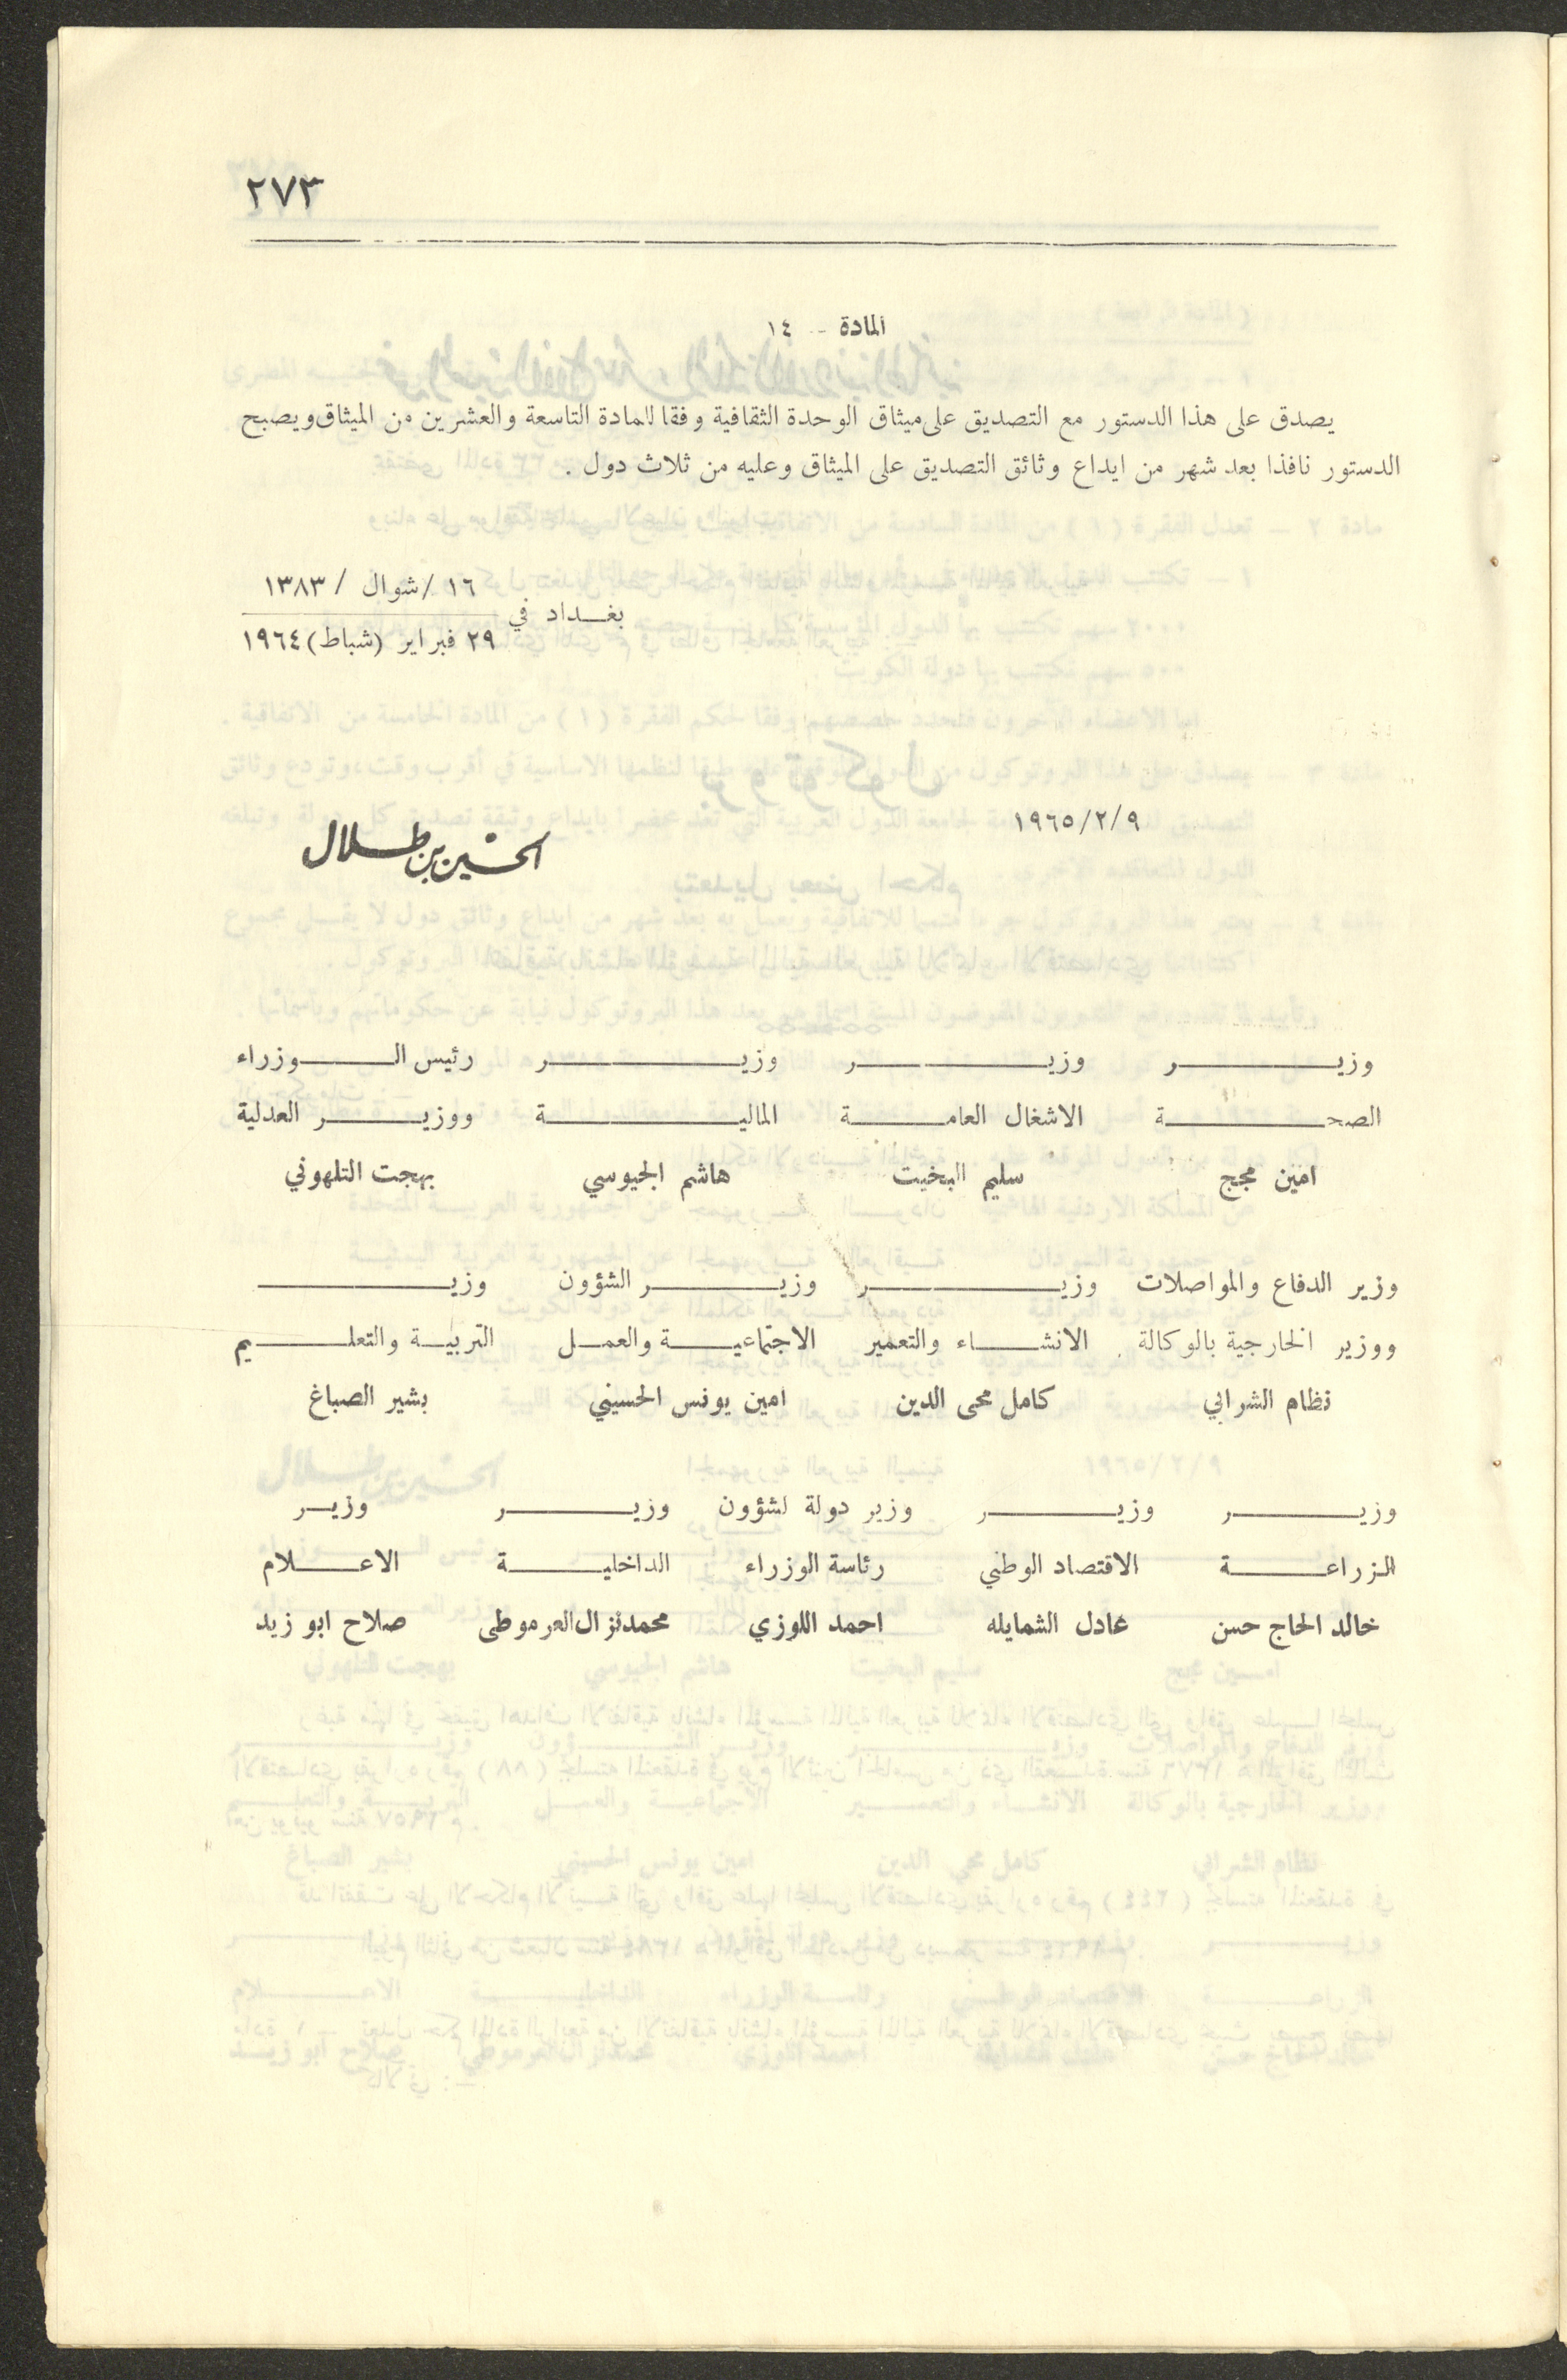 ٢٧٣
المادة - ١٤
يصدق على هذا الدستور مع التصديق على ميثاق الوحدة الثقافية وفقا للمادة التاسعة والعشرين من الميثاق ويصبح
الدستور نافذا بعد شهر من ايداع وثائق التصديق على الميثاق وعليه من ثلاث دول .
بغداد في ١٦ /شوال / ١٣٨٣
٢٩ فبراير (شباط) ١٩٦٤
١٩٦٥/٢/٩
الحسين بن طلال
وزير وزير وزير رئيس الوزراء
الصحة الاشغال العامة المالية ووزير العدلية
امين مجج سليم البخيت هاشم الجيوسي بهجت التلهوني
وزير الدفاع والمواصلات وزير وزير الشؤون وزير
ووزير الخارجية بالوكالة الانشاء والتعمير الاجتماعية والعمل التربية والتعليم
نظام الشرابي كامل محى الدين امين يونس الحسيني بشير الصباغ
وزير وزير وزير دولة لشؤون وزير وزير
الزراعة الاقتصاد الوطني رئاسة الوزراء الداخلية الاعلام
خالد الحاج حسن عادل الشمايله احمد اللوزي محمد نزال العرموطى صلاح ابو زيد